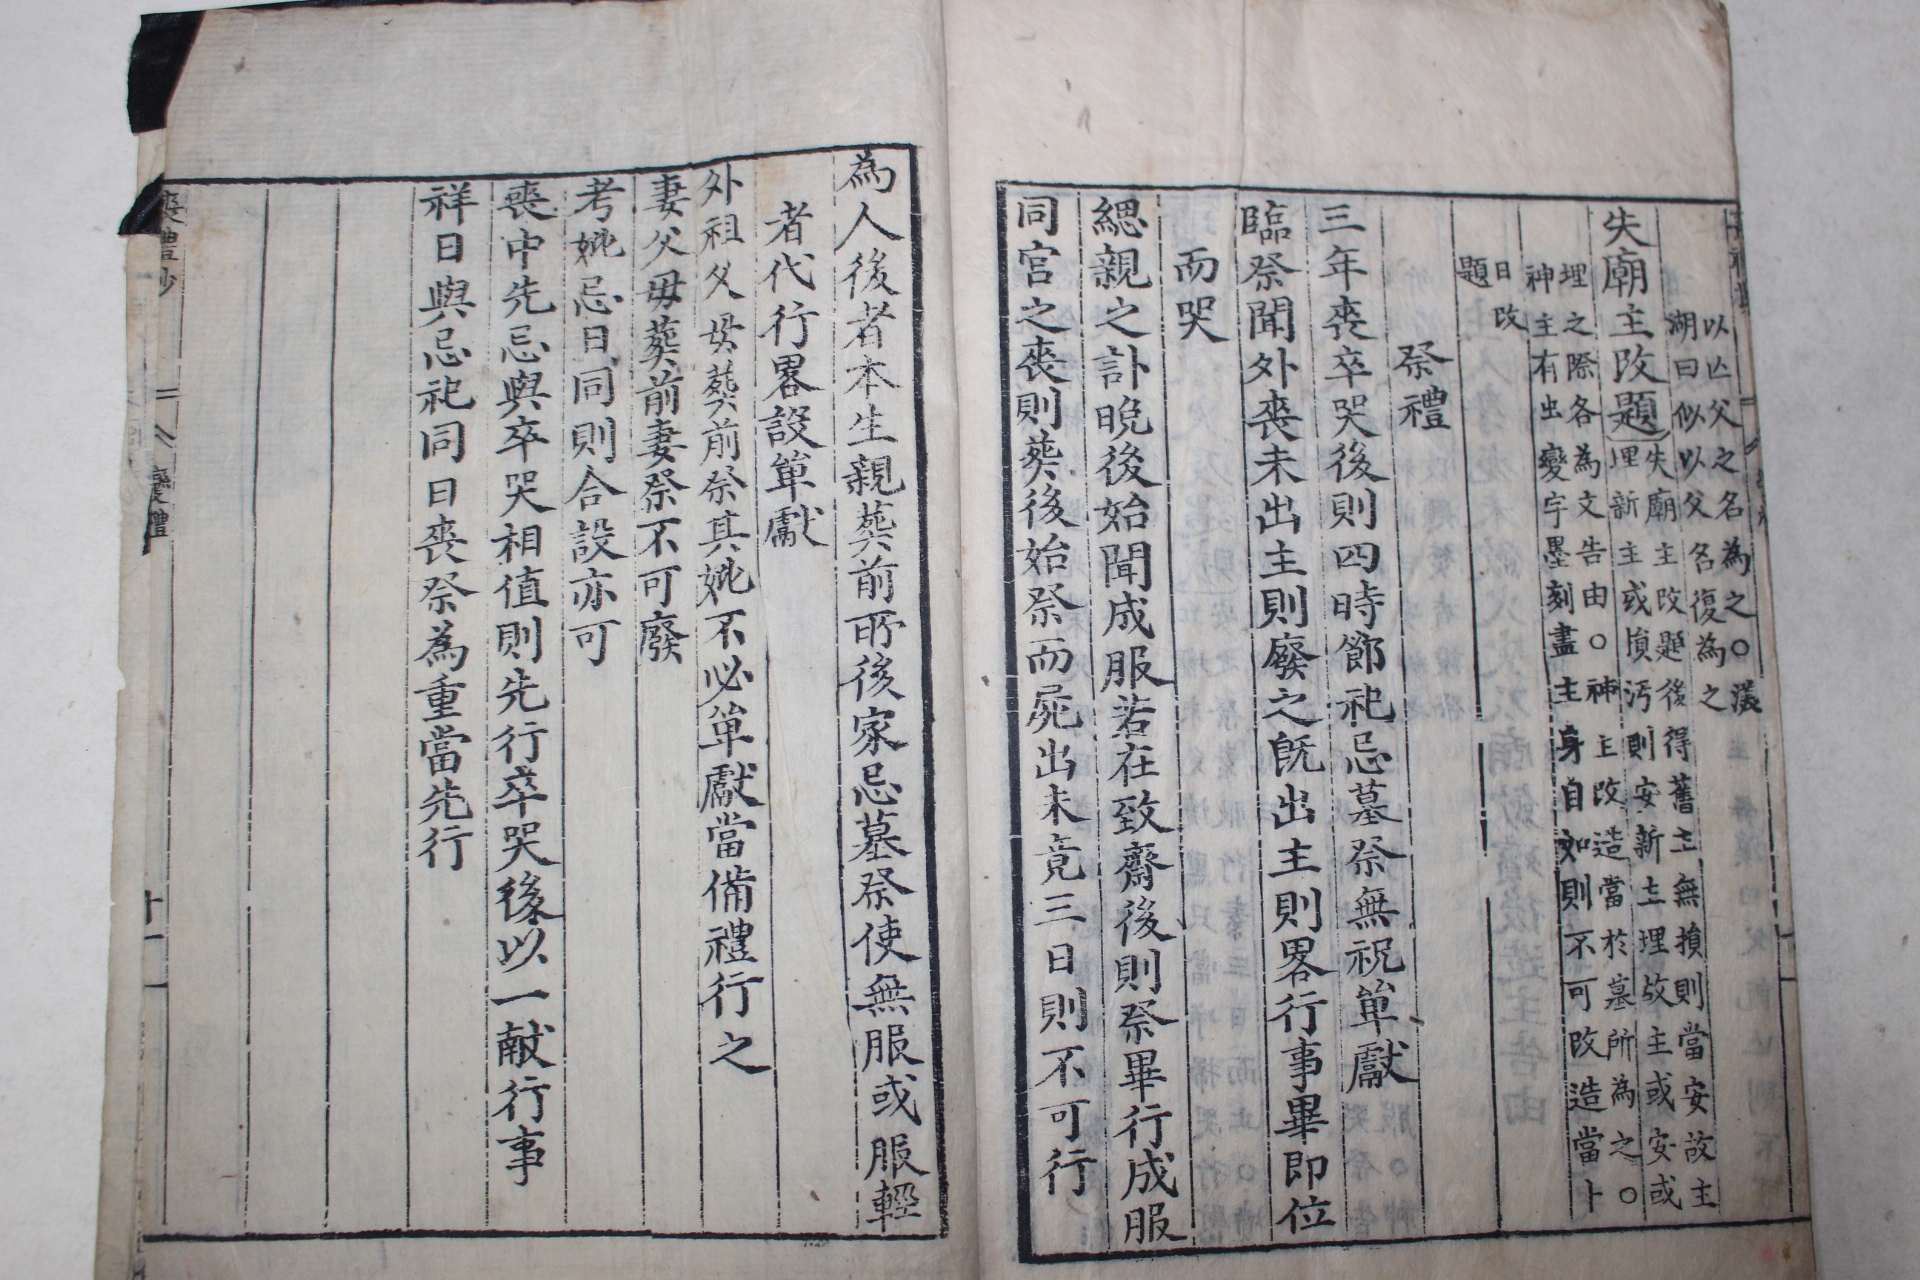 以亾父之名為之○漢
湖曰似以父名復為之
失廟主改題
失廟主改題後得舊主無損則當安故主
埋新主或損汚則安新主埋故主或安或
埋之際各為文告由○神主改造當於墓所為之○
神主有出變字墨刻盡主身自如則不可改造當卜
日改
題
祭禮
三年喪卒哭後則四時節祀忌墓祭無祝單獻
臨祭聞外喪未出主則廢之旣出主則畧行事畢即位
而哭
緦親之訃晩後始聞成服若在致齋後則祭畢行成服
同宮之喪則葬後始祭而屍出未竟三日則不可行
為人後者本生親葬前所後家忌墓祭使無服或服輕
者代行畧設單獻
外祖父母葬前祭其妣不必單獻當備禮行之
妻父母葬前妻祭不可廢
考妣忌日同則合設亦可
喪中先忌與卒哭相値則先行卒哭後以一献行事
祥日與忌祀同日喪祭為重當先行
喪禮抄
變禮
十一